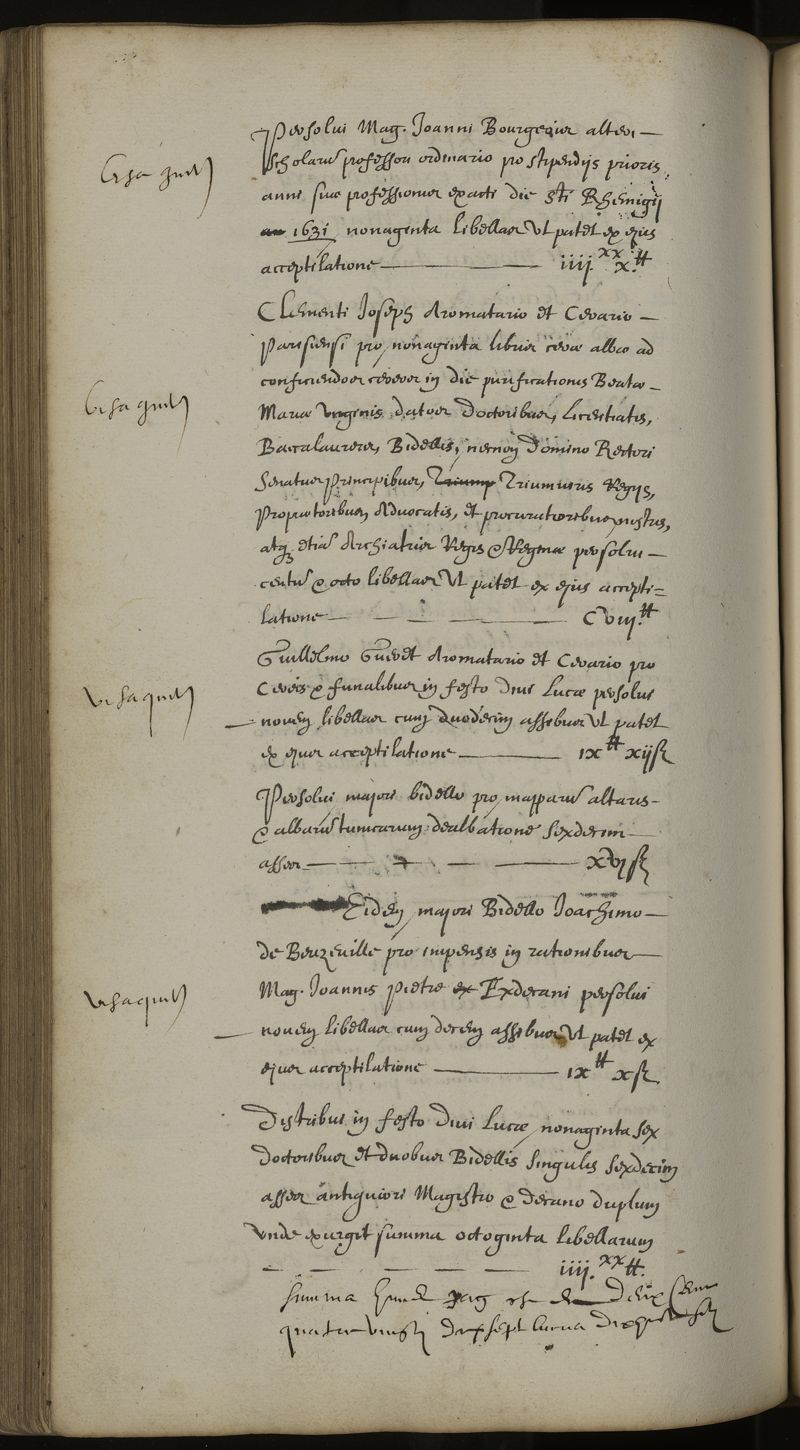 Persolui Mag. Joanni Bourgeois alteri
scholarũ professori ordinario pro stipendijs prioris
anni suæ professionis exacti die sti Rhemigij
an 1631 nonaginta libellas Vt patet ex ejus
acceptilatione iiij.xx x.tt
Clementi Joseph Aromatario et Cerario
Parisiensi pro nonaginta libris ceræ albæ ad
conficiendos cereos in die purificationis Beatæ
Mariæ virginis datos Doctoribus, licentiatis,
Baccalaureis, Bidellis, necnon Domino Rectori
Senatus Principibus, Triump Triumuiris Regijs,
Propraetoribus Aduocatis, et procuratoribus nostris,
atq etiã Archiatris Regis & Reginæ persolui
centũ & octo libellas Vt patet ex ejus accepti=
latione C viij.tt
Guillelmo Gueret Aromatario et Cerario pro
Cereis & funalibus in festo Diui Lucæ persolui
nouem libellas cum duodecim assibus vt patet
ex ejus acceptilatione ix tt xijs
Persolui majori bidello pro mapparũ altaris
& albarũ tunicarum dealbatione sexdecim
asses xvjs
Eidem majori Bidello Joachimo
de Beuzeuille pro impensis in rationibus
Mag. Joannis Pietre ex Exdecani persolui
nouem libellas cum decem assibus Vt patet ex
ejus acceptilatione ix tt xs
Distribui in festo Diui Lucæ nonaginta sex
Doctoribus et duobus Bidellis singulis sexdecim
asses antiquiori Magistro & Decano duplum
vnde exurgit summa octoginta libellarum
iiij.xx tt.
Summa pag deux Cens
quatre vingt dix sept liures